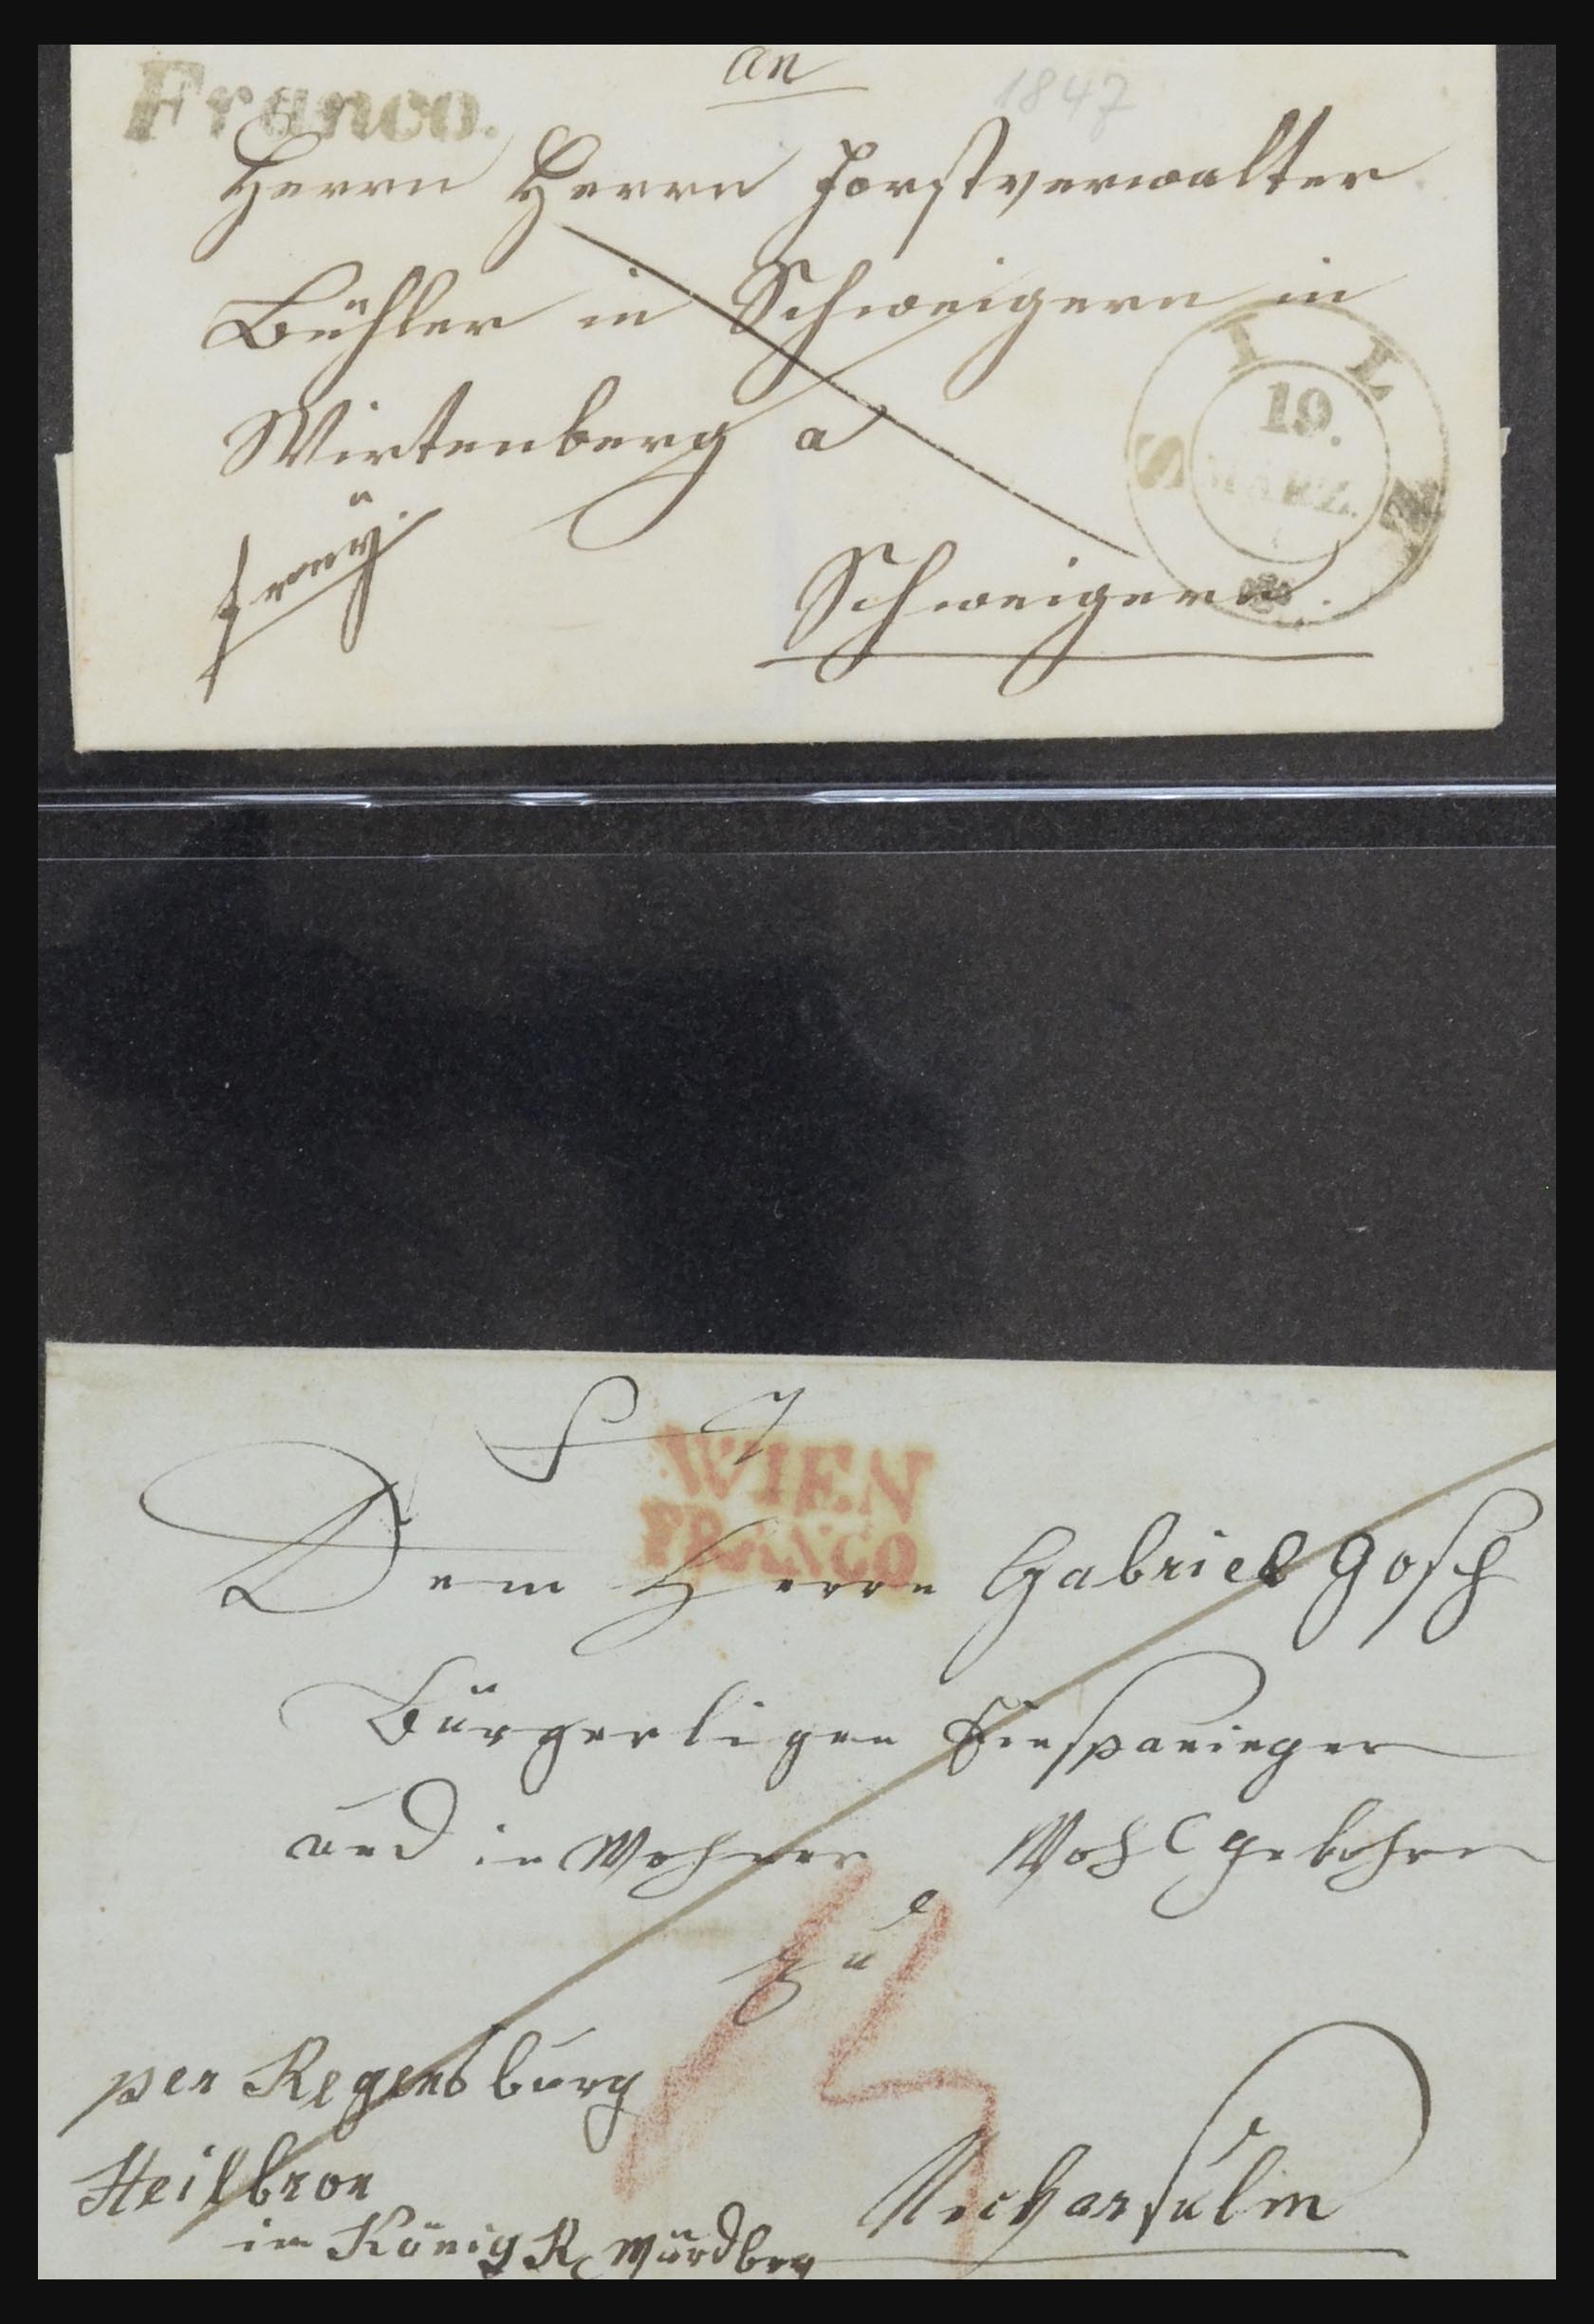 an
1847
Franco.
Herrn Herrn Forstverwalter
Bühler in Schweigern in
Wirtenberg a
SILZ
19.
MÄRZ.
Schweigern.
WIEN
FRANCO
Dem Herrn Gabriel Gosch
Bürgerligen Einspaninger
und in Wohner Wohlgebohrn
zu
per Regensburg
Heilbron
im König R Würdberg
Neckarsulm